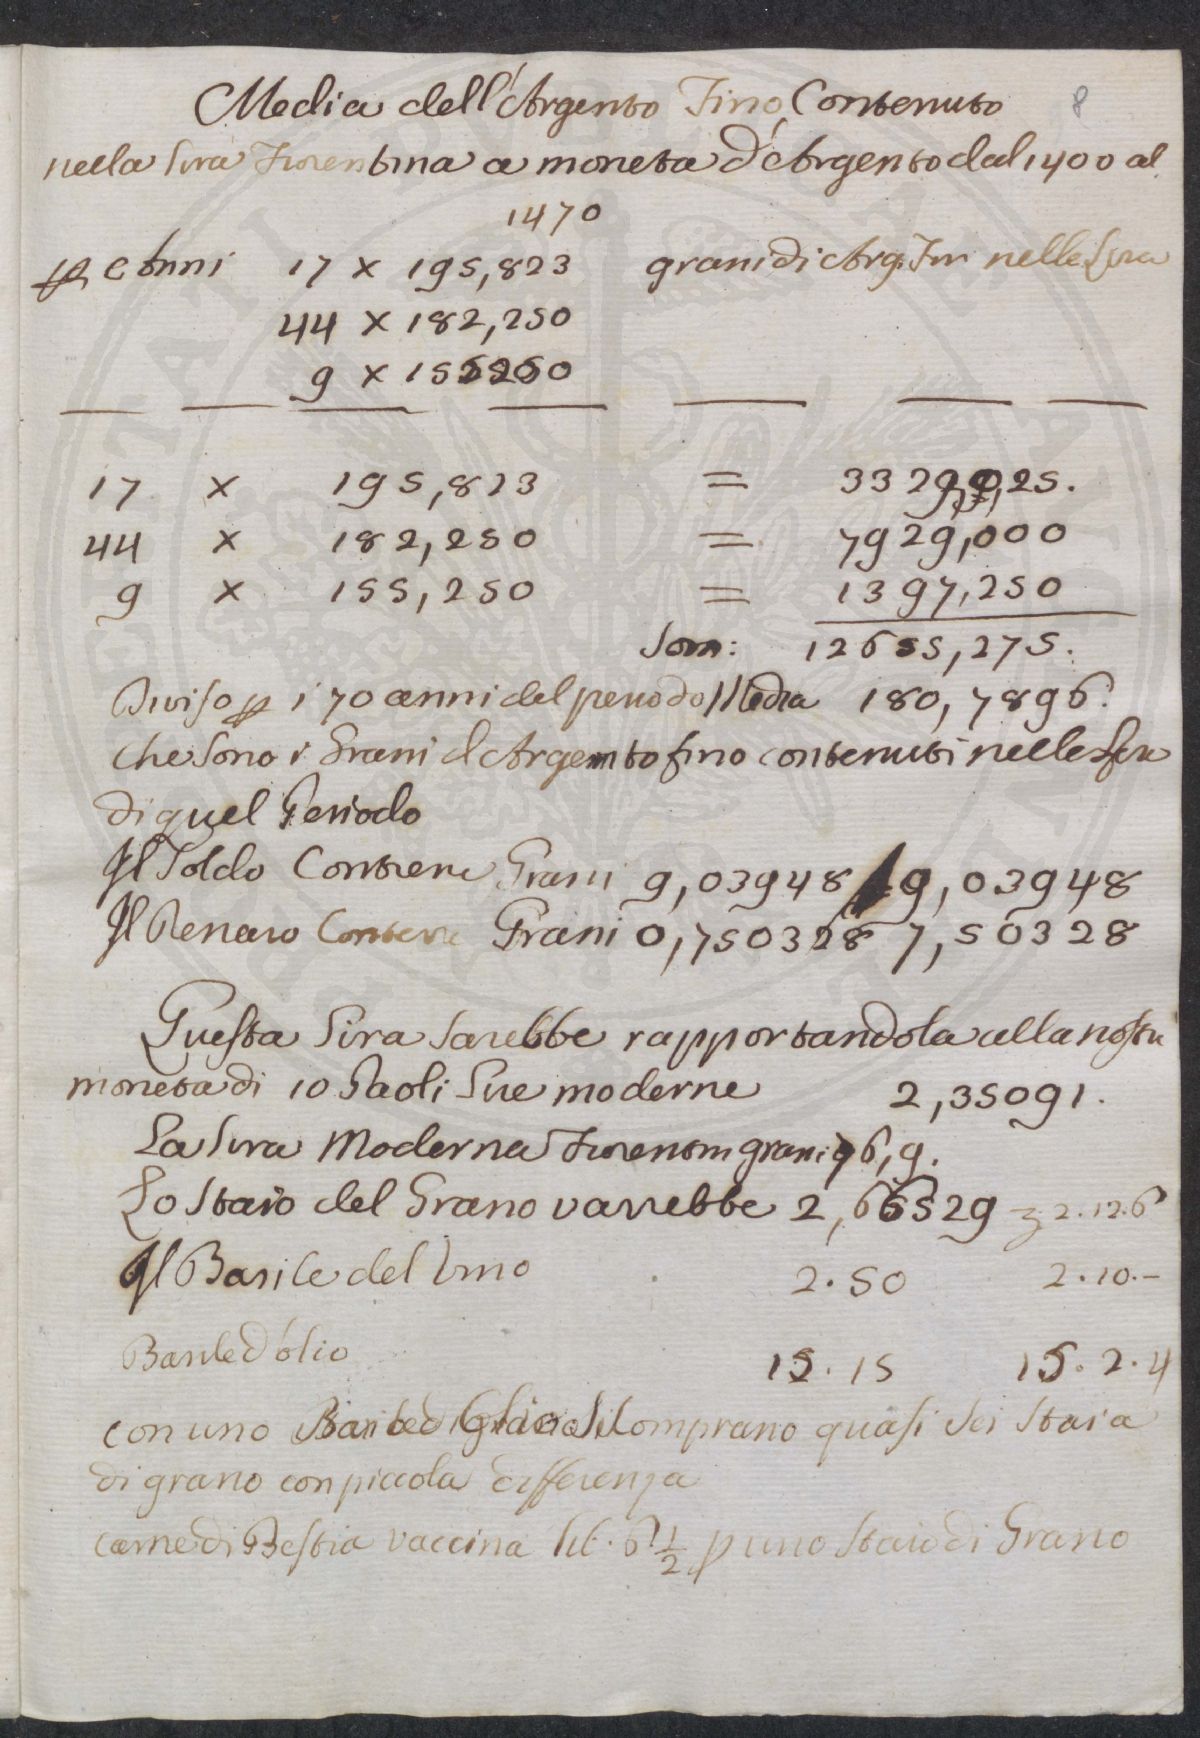 8
Media dell'Argento Fino Contenuto
nella Lira Fiorentina a moneta d'Argento dal 1400 al
1470
p Anni 17 x 195,823 grani di Arg. Fin nelle Lira
44 x 182,250
9 x 155250
17 x 195,823 = 3329,025.
44 x 182,250 = 7929,000
9 x 155,250 = 1397,250
Som: 12655,275.
Diviso p i 70 anni del periodo Media 180,7896.
che sono i Grani d'Argento fino contenuti nelle Lira
di quel Periodo
Il Soldo Contiene Grani 9,03948 9,03948
Il Denaro Contiene Grani 0,750328 7,50328
Questa Lira sarebbe rapportandola alla nostra
moneta di 10 Paoli Lire moderne 2,35091.
La Lira Moderna Fiorentin grani 76,9.
Lo Staio del Grano varrebbe 2,66529 2.12.6
Il Barile del Vino 2.50 2.10.-
Barile d'olio 15.15 15.2.4
con uno Barile d' Si Comprano quasi sei Staia
di grano con piccola differenza
carne di Bestia vaccina lib. 6 1/2 p uno Staio di Grano